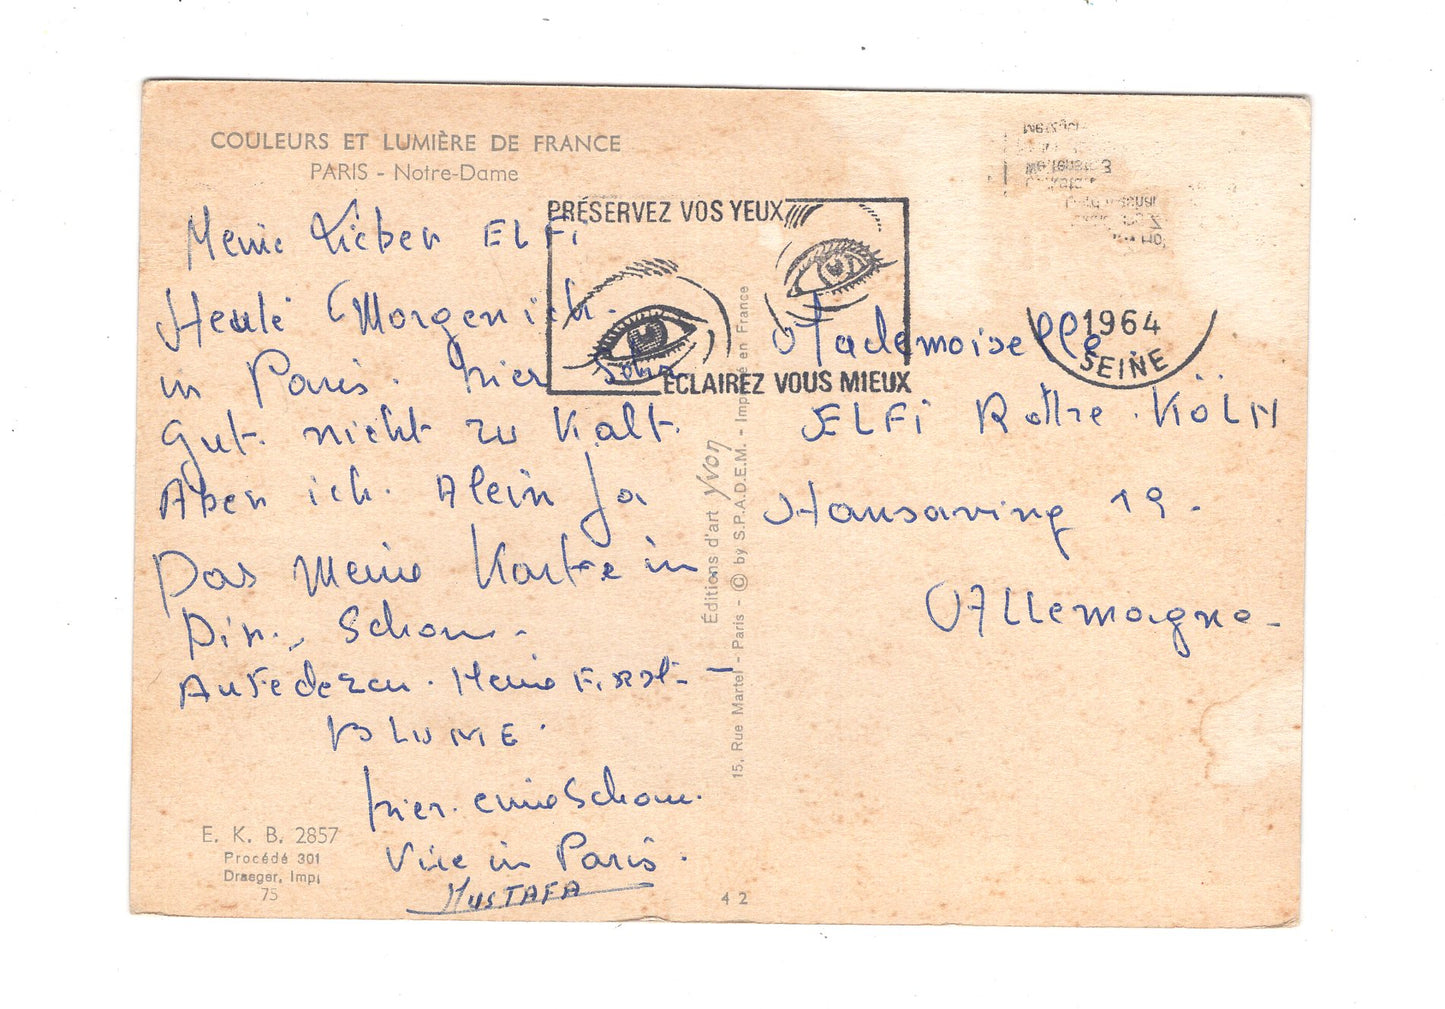 COULEURS ET LUMIÈRE DE FRANCE
PARIS - Notre-Dame
Meine Lieber ELFi
Heute Morgen ich.
in Paris. hier Sehr
Gut. nicht zu Kalt.
Aber ich. Alein Ja
Das Meine Karte in
Dir., Schon.
Aufedezen. Meine First -
BLUME.
hier. eine Schon.
Vile in Paris.
MUSTAFA
E. K. B. 2857
Procédé 301
Draeger, Imp.
75
PRÉSERVEZ VOS YEUX
ECLAIREZ VOUS MIEUX
1964
SEINE
Éditions d'art yvon
15, Rue Martel - Paris - © by S.P.A.D.E.M. - Imprimé en France
Mademoiselle
ELFi Rothe. KÖLN
Hansaring 19.
Allemagne.
42